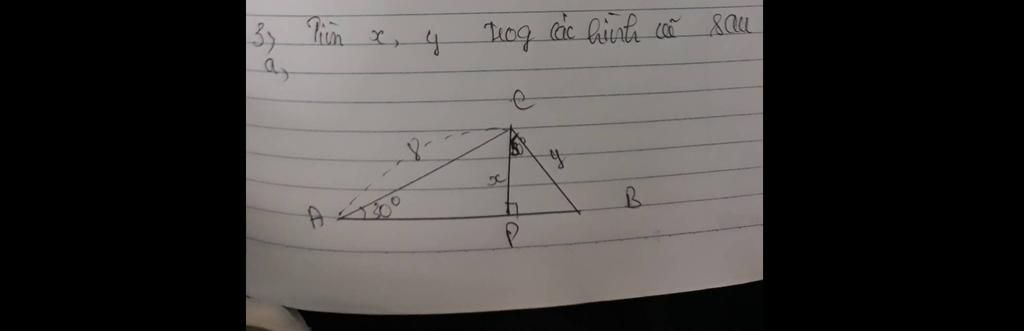 3, Tìm x, y trog các hình vẽ sau
a,
C
8
y
x
A 30° B
P